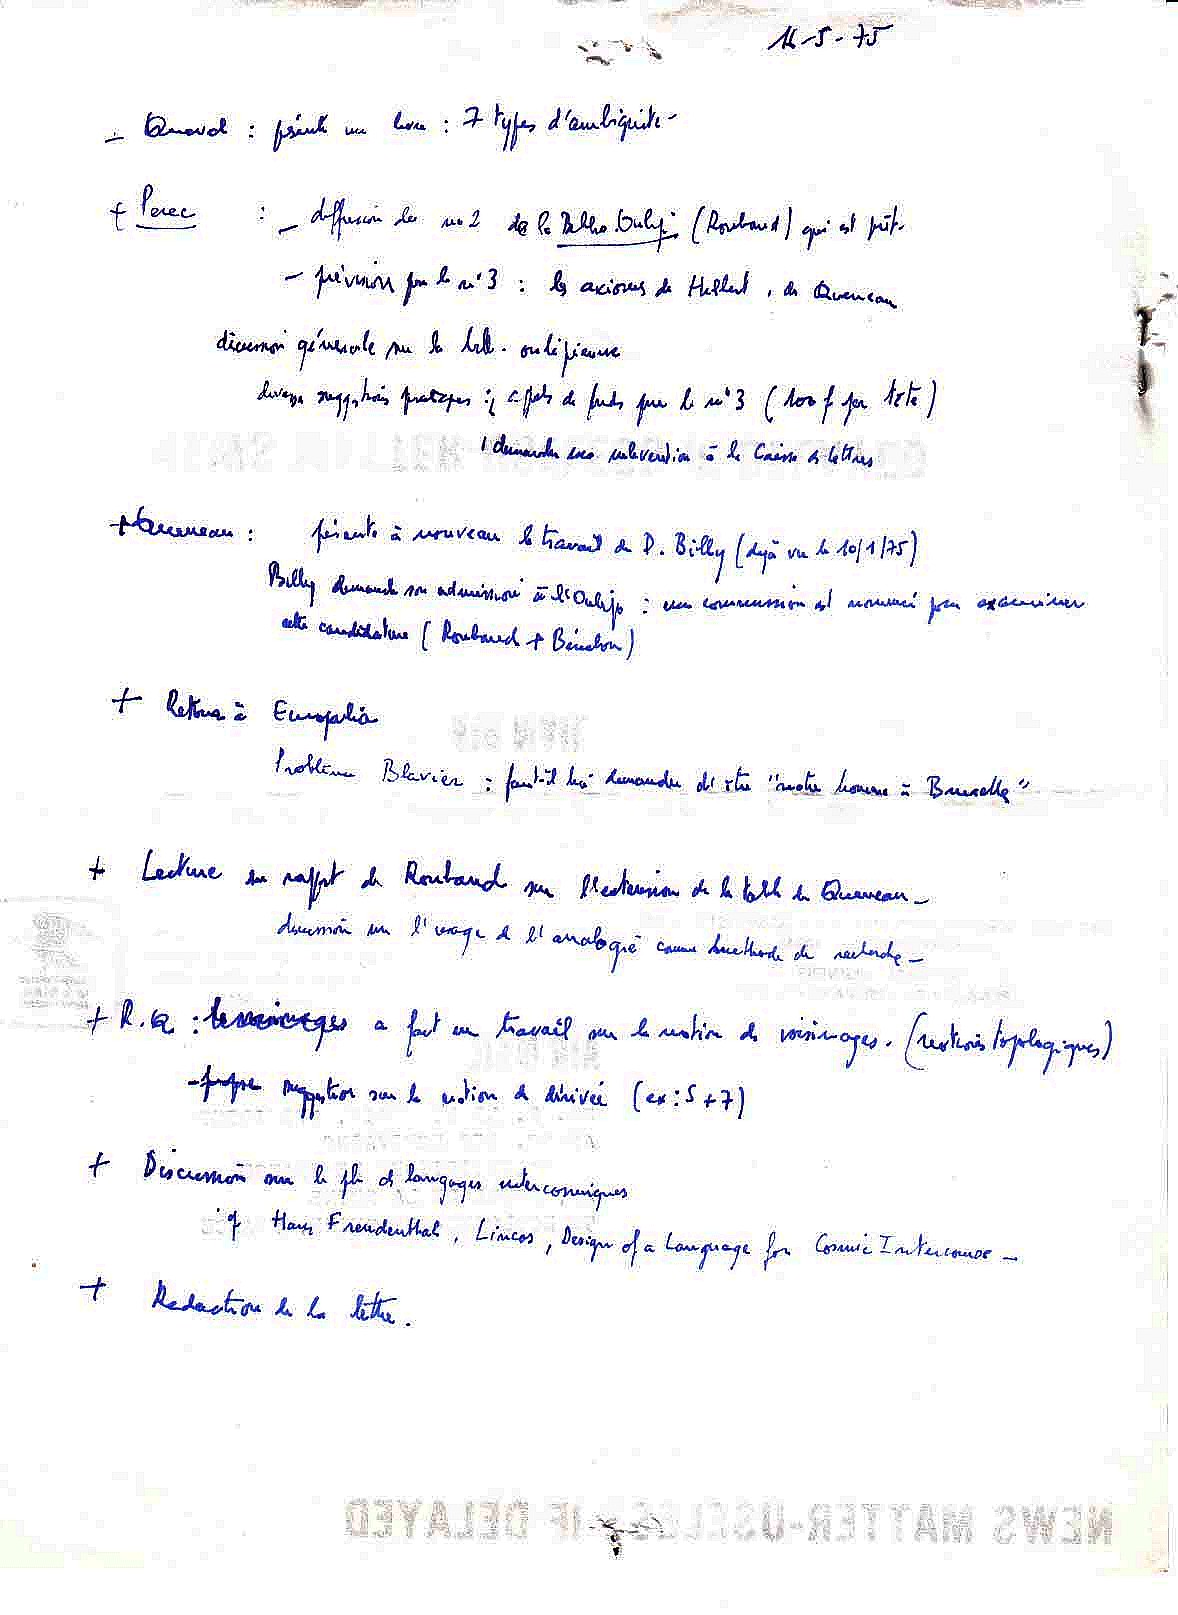 -5-75
- Queval : présente un livre : 7 types d'ambiguité -
+ Perec : - diffusion du no 2 de la Biblio. Oulip. (Roubaud) qui est prêt.
- prévision pour le n° 3 : les axiomes de Hilbert, de Queneau
discussion générale sur la bibli. oulipienne
diverses suggestions pratiques : appels de fonds pour le n° 3 (100 f par tête)
demander une subvention à la Caisse des lettres
+ Queneau : présente à nouveau le travail de D. Billy (déjà vu le 10/1/75)
Billy demande son admission à l'Oulipo : une commission est nommée pour examiner
cette candidature (Roubaud + Bénabou)
+ Retour à Europalia
Problème Blavier : faut-il lui demander d'être "notre homme à Bruxelles"
+ Lecture du rapport de Roubaud sur l'extension de la table de Queneau -
discussion sur l'usage de l'analogie comme méthode de recherche -
+ R.Q : a fait un travail sur la notion de voisinages. (notions topologiques)
- propose suggestion sur la notion de dérivée (ex : S + 7)
+ Discussion sur le pb des langages intercosmiques
cf Hans Freudenthal, Lincos, Design of a Language for Cosmic Intercourse -
+ Rédaction de la lettre.
NEWS MATTER-USELESS IF DELAYED